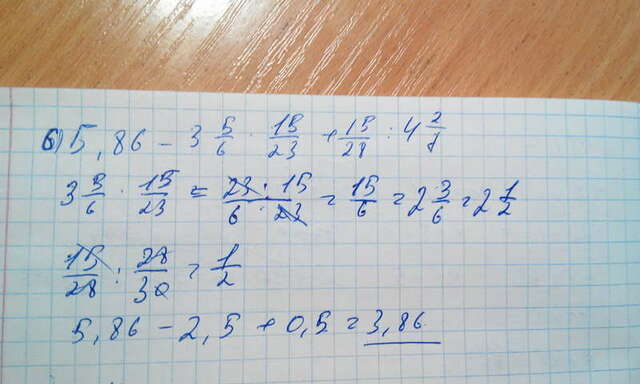 б) 5,86 - 3 5/6 · 15/23 + 15/28 : 4 2/7
3 5/6 · 15/23 = 23 · 15 / 6 · 23 = 15/6 = 2 3/6 = 2 1/2
15/28 : 28/30 = 1/2
5,86 - 2,5 + 0,5 = 3,86